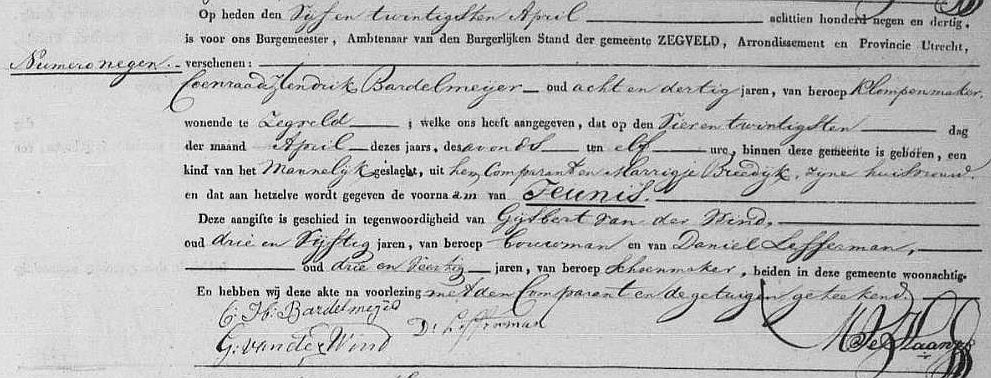 Op heden den Vijf en twintigsten April achttien honderd negen en dertig,
is voor ons Burgemeester, Ambtenaar van den Burgerlijken Stand der gemeente ZEGVELD, Arrondissement en Provincie Utrecht,
Numero negen. verschenen:
Coenraad Hendrik Bardelmeijer oud acht en dertig jaren, van beroep Klompenmaker
wonende te Zegveld ; welke ons heeft aangegeven, dat op den Vier en twintigsten dag
der maand April dezes jaars, des avonds ten elf ure, binnen deze gemeente is geboren, een
kind van het Mannelijk geslacht, uit hem Comparant en Marrigje Breedijk, zijne huisvrouw.
en dat aan hetzelve wordt gegeven de voornaam van Teunis.
Deze aangifte is geschied in tegenwoordigheid van Gijsbert van der Wind,
oud drie en Vijftig jaren, van beroep bouwman en van Daniel Lefferman,
oud drie en Veertig jaren, van beroep Schoenmaker, beiden in deze gemeente woonachtig.
En hebben wij deze akte na voorlezing met den Comparant en de getuigen geteekend.
C: H: Bardelmeijer
D: Lefferman
G: van der Wind